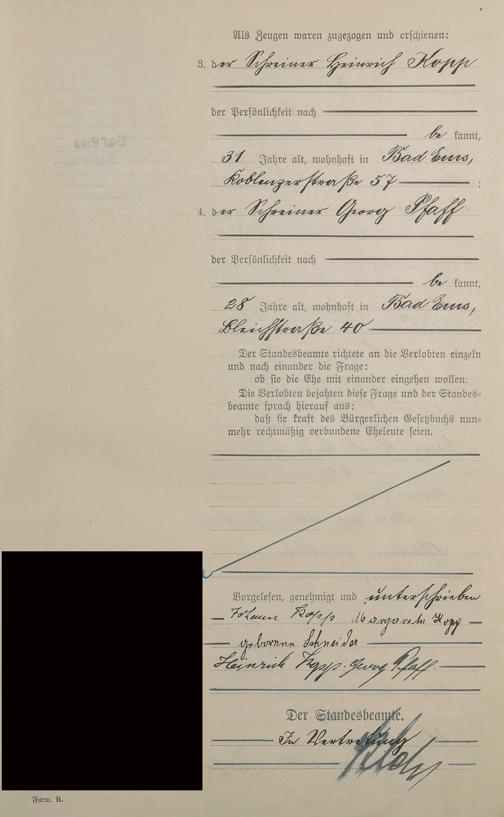 Als Zeugen waren zugezogen und erschienen:
3. der Schreiner Heinrich Kopp
der Persönlichkeit nach
be kannt,
31 Jahre alt, wohnhaft in Bad Ems,
Koblenzerstraße 57 ;
4. der Schreiner Georg Pfaff
der Persönlichkeit nach
be kannt,
28 Jahre alt, wohnhaft in Bad Ems,
Bleichstraße 40
Der Standesbeamte richtete an die Verlobten einzeln
und nach einander die Frage:
ob sie die Ehe mit einander eingehen wollen.
Die Verlobten bejahten diese Frage und der Standes=
beamte sprach hierauf aus:
daß sie kraft des Bürgerlichen Gesetzbuchs nun=
mehr rechtmäßig verbundene Eheleute seien.
Vorgelesen, genehmigt und unterschrieben
Johann Kopp Margareta Kopp
geborene Schneider
Heinrich Kopp. Georg Pfaff.
Der Standesbeamte.
In Vertretung
Form. B.